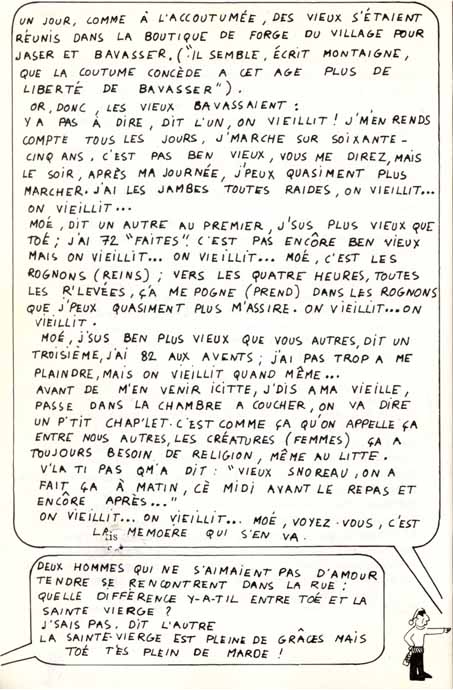 UN JOUR, COMME À L'ACCOUTUMÉE, DES VIEUX S'ÉTAIENT
RÉUNIS DANS LA BOUTIQUE DE FORGE DU VILLAGE POUR
JASER ET BAVASSER. ("IL SEMBLE, ÉCRIT MONTAIGNE,
QUE LA COUTUME CONCÈDE A CET AGE PLUS DE
LIBERTÉ DE BAVASSER").
OR, DONC, LES VIEUX BAVASSAIENT :
Y A PAS À DIRE, DIT L'UN, ON VIEILLIT! J'M'EN RENDS
COMPTE TOUS LES JOURS, J'MARCHE SUR SOIXANTE-
CINQ ANS. C'EST PAS BEN VIEUX, VOUS ME DIREZ, MAIS
LE SOIR, APRÈS MA JOURNÉE, J'PEUX QUASIMENT PLUS
MARCHER. J'AI LES JAMBES TOUTES RAIDES, ON VIEILLIT...
ON VIEILLIT...
MOÉ, DIT UN AUTRE AU PREMIER, J'SUS PLUS VIEUX QUE
TOÉ; J'AI 72 "FAITES". C'EST PAS ENCÔRE BEN VIEUX
MAIS ON VIEILLIT... ON VIEILLIT... MOÉ, C'EST LES
ROGNONS (REINS); VERS LES QUATRE HEURES, TOUTES
LES R'LEVÉES, Ç'A ME POGNE (PREND) DANS LES ROGNONS
QUE J'PEUX QUASIMENT PLUS M'ASSIRE. ON VIEILLIT... ON
VIEILLIT.
MOÉ, J'SUS BEN PLUS VIEUX QUE VOUS AUTRES, DIT UN
TROISIÈME, J'AI 82 AUX AVENTS; J'AI PAS TROP A ME
PLAINDRE, MAIS ON VIEILLIT QUAND MÊME...
AVANT DE M'EN VENIR ICITTE, J'DIS A MA VIEILLE,
PASSE DANS LA CHAMBRE A COUCHER, ON VA DIRE
UN P'TIT CHAP'LET. C'EST COMME ÇA QU'ON APPELLE ÇA
ENTRE NOUS AUTRES, LES CRÉATURES (FEMMES) ÇA A
TOUJOURS BESOIN DE RELIGION, MÊME AU LITTE.
V'LA TI PAS QM'A DIT : "VIEUX SNOREAU, ON A
FAIT ÇA À MATIN, CÈ MIDI AVANT LE REPAS ET
ENCÔRE APRÈS..."
ON VIEILLIT... ON VIEILLIT... MOÉ, VOYEZ-VOUS, C'EST
LA MEMOÈRE QUI S'EN VA.
DEUX HOMMES QUI NE S'AIMAIENT PAS D'AMOUR
TENDRE SE RENCONTRENT DANS LA RUE :
QUELLE DIFFÉRENCE Y-A-T-IL ENTRE TOÉ ET LA
SAINTE VIERGE ?
J'SAIS PAS. DIT L'AUTRE
LA SAINTE-VIERGE EST PLEINE DE GRÂCES MAIS
TOÉ T'ES PLEIN DE MARDE !